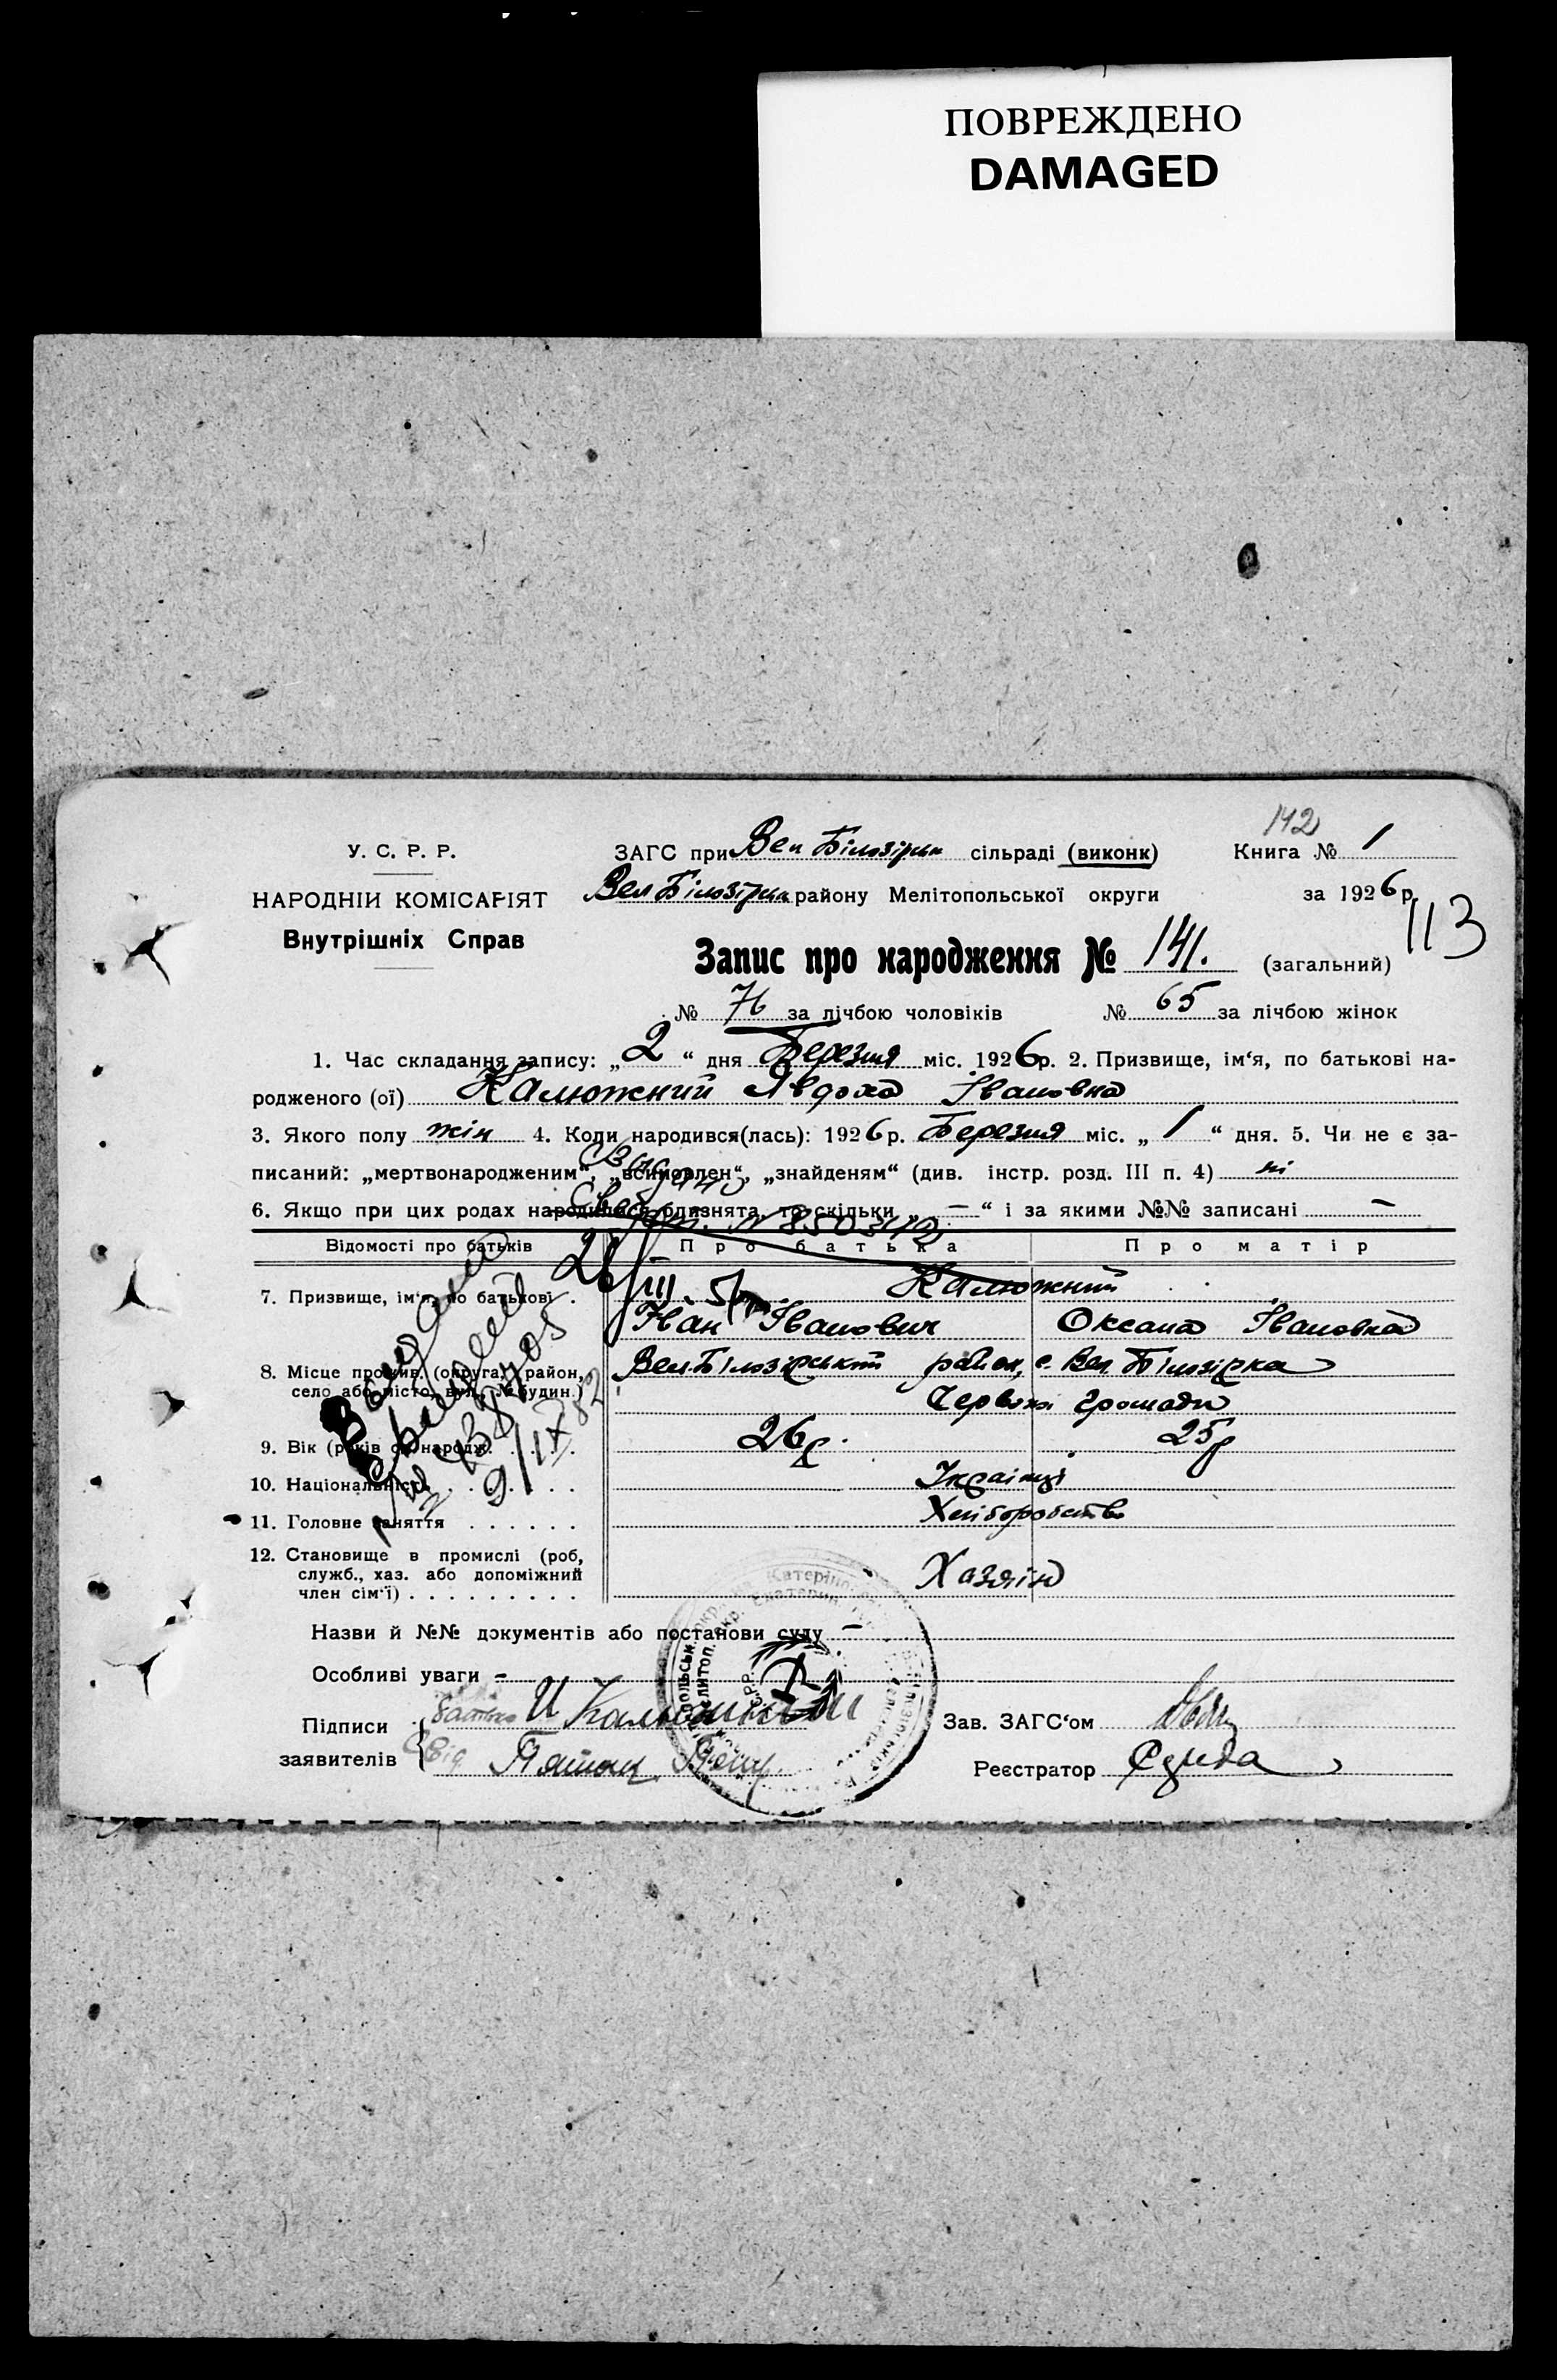 ПОВРЕЖДЕНО
DAMAGED
142
У. С. Р. Р.
ЗАГС при Вел Білозірки сільраді (виконк)
Книга № 1
НАРОДНІЙ КОМІСАРІЯТ
Вел Білозірки району Мелітопольської округи
за 1926 р.
113
Внутрішніх Справ
Запис про народження № 141. (загальний)
№ 76 за лічбою чоловіків № 65 за лічбою жінок
1. Час складання запису: „ 2 “ дня Березня міс. 1926р. 2. Призвище, ім‘я, по батькові на-
родженого (ої) Калюжний Явдоха Івановна
3. Якого полу жін 4. Коли народився(лась): 1926 р. Березня міс. „ 1 “ дня. 5. Чи не є за-
писаний: „мертвонародженим“, „всиновлен“, „знайденям“ (див. інстр. розд. III п. 4) ні
6. Якщо при цих родах народилися близнята, то скільки „ – “ і за якими №№ записані –
Відомості про батьків
Про батька
Про матір
7. Призвище, ім‘я, по батькові .
Калюжний
Іван Іванович
Оксана Івановна
8. Місце прожив. (округа, район,
село або місто, вул., № будин.)
Вел.Білозірський район, с. Вел. Білозірка
Червоні громади
9. Вік (років од народж. . . . . .
26 р.
25 р
10. Національність . . . . . . .
Українці
11. Головне заняття . . . . . .
Хліборобство
12. Становище в промислі (роб,
служб., хаз. або допоміжний
член сім‘ї) . . . . . . . . . .
Хазяїн
Назви й №№ документів або постанови суду –
Особливі уваги –
Підписи
заявителів
батько И Калюжний
Зав. ЗАГС‘ом
Реєстратор Середа